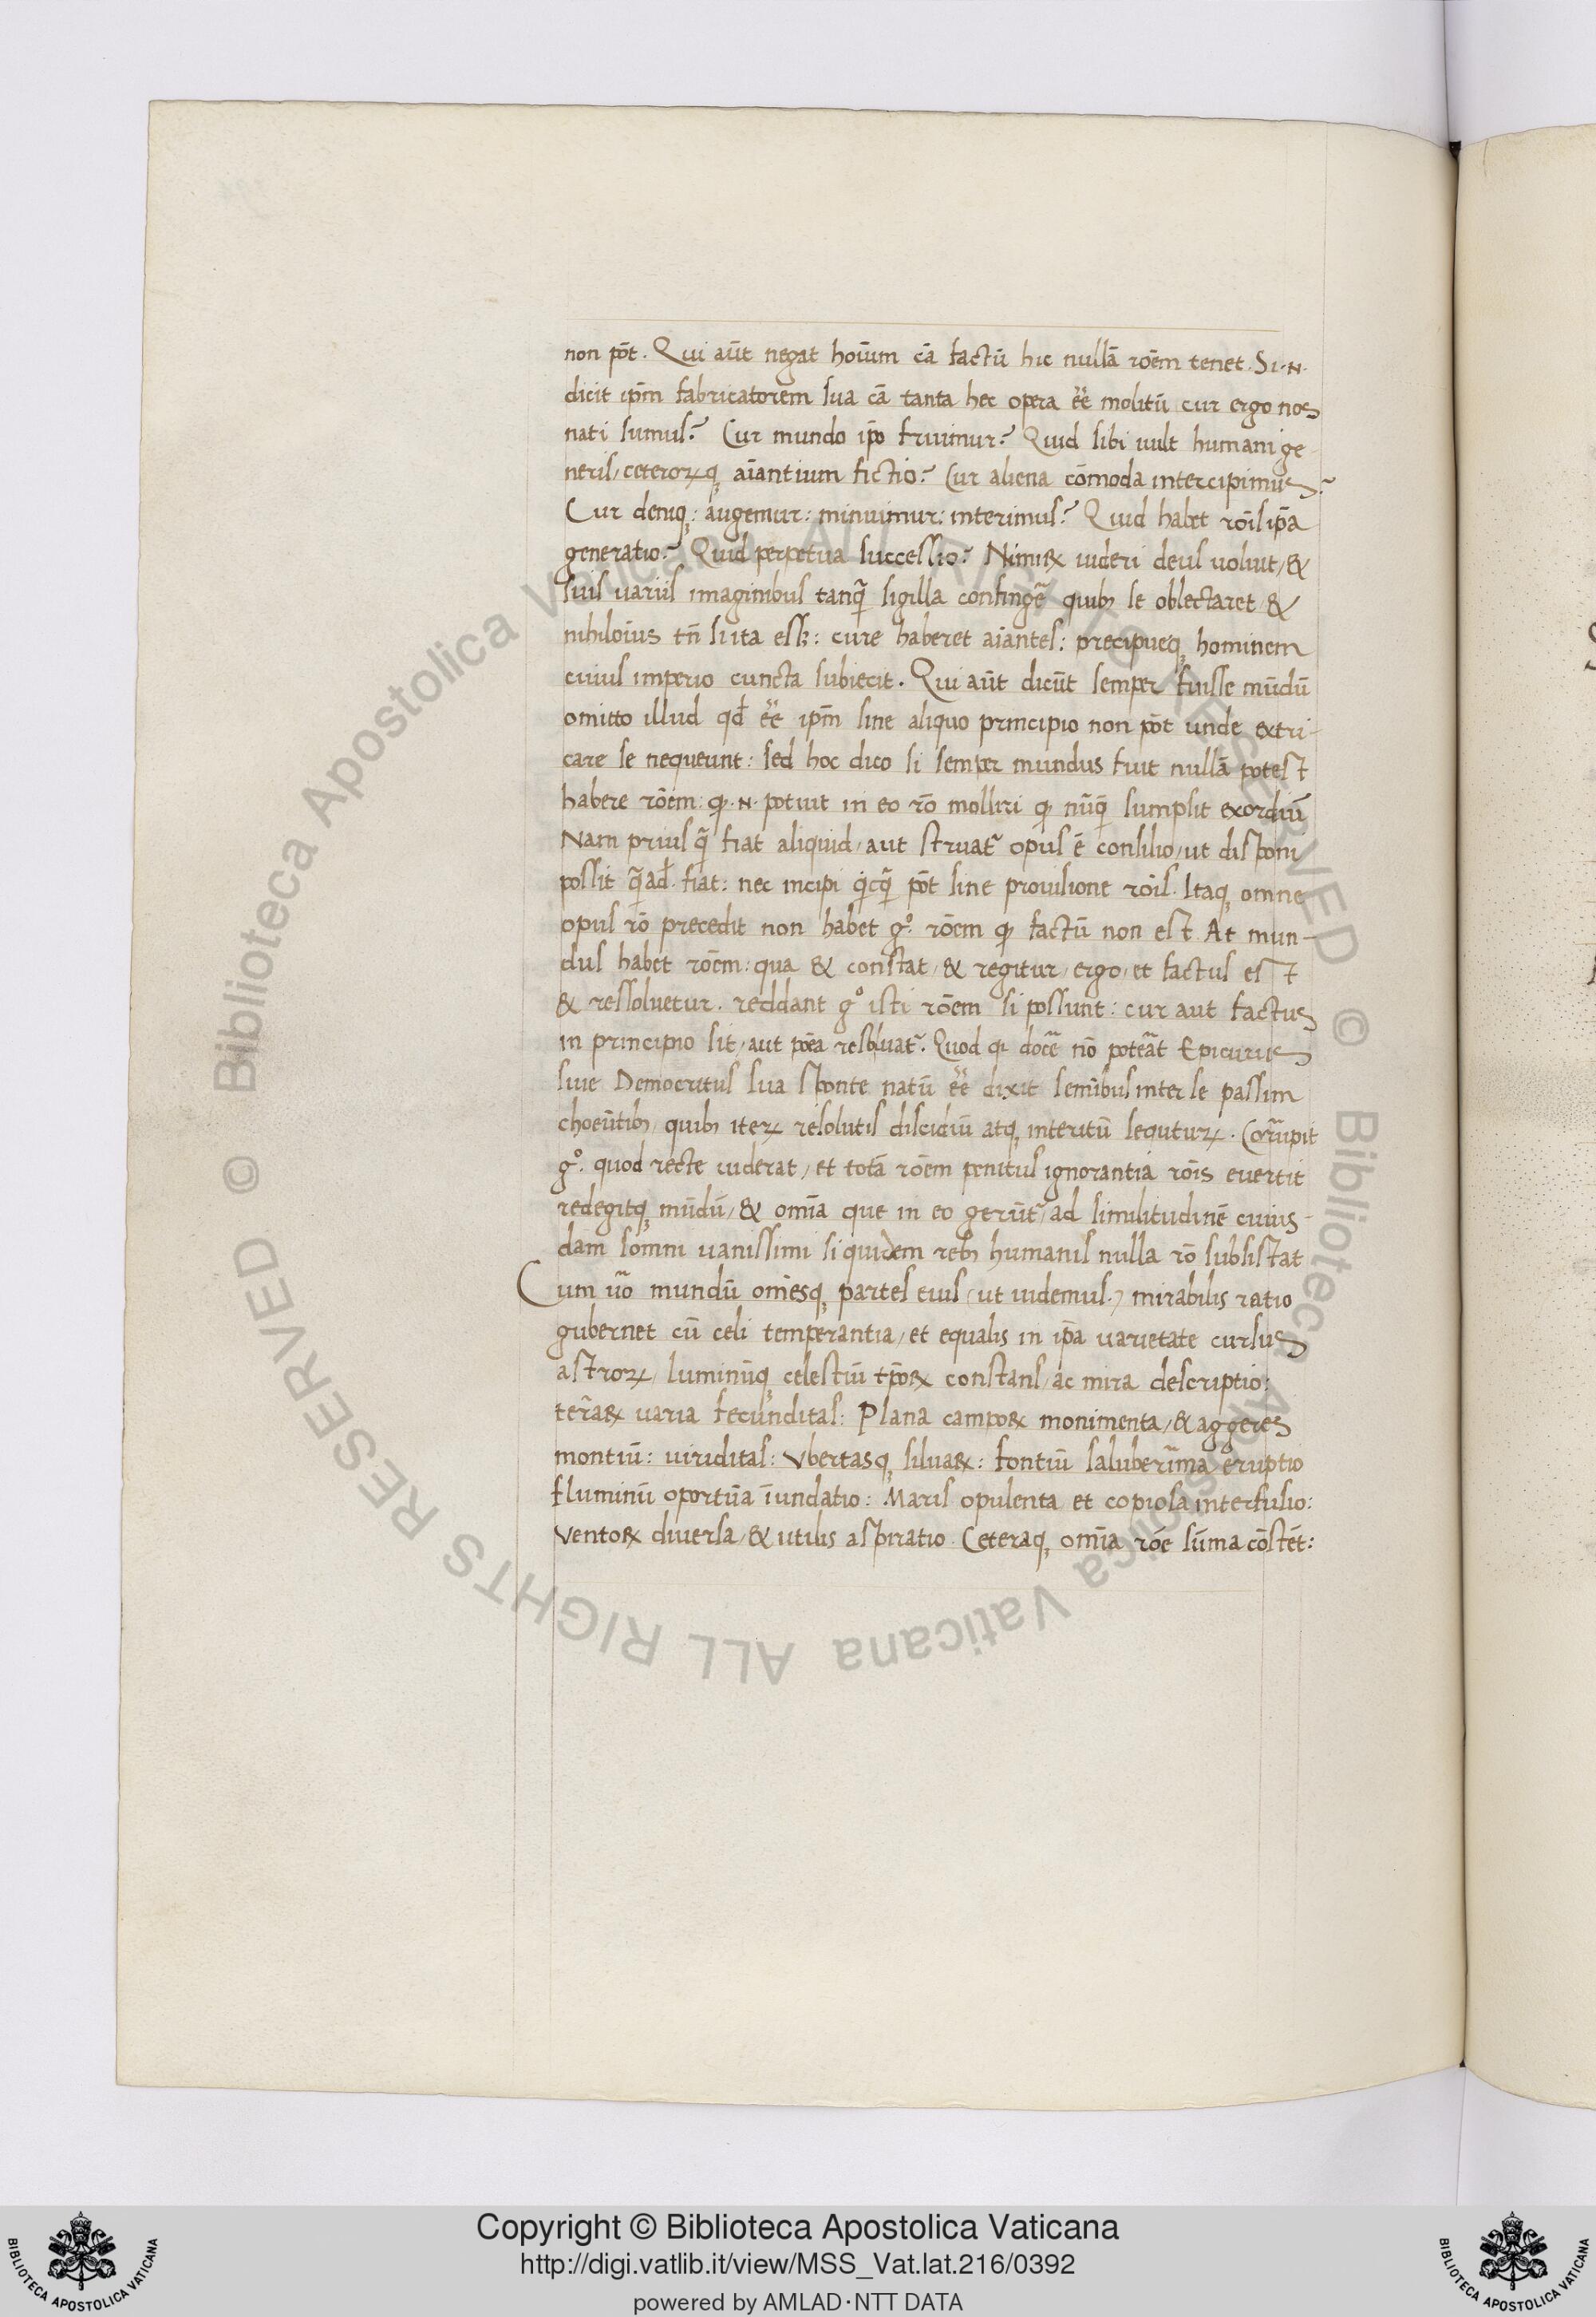 non põt. Qui aũt negat hoĩum cã factũ hic nullã rõem tenet. Si .N.
dicit ip̃m fabricatorem sua cã tanta hec opera eẽ molitũ cur ergo nos
nati sumus? Cur mundo ip̃o fruimur? Quid sibi uult humani ge
neris/ ceterorꝝq, aĩantium fictio? Cur aliena cõmoda intercipimus?
Cur deniq,: augemur: minuimur: interimus? Quid habet rõis ip̃a
generatio? Quid perpetua successio? Nimiꝝ uideri deus uoluit/ &
suis variis imaginibus tanq̃ sigilla confingẽ quibꝫ se oblectaret/ &
nihiloĩus tñ si ita essꝫ: cure haberet aĩantes: precipueq, hominem
cuius imperio cuncta subiecit. Qui aũt dicũt semper fuisse mũdũ
omitto illud qd̃ eẽ ip̃m sine aliquo principio non põt unde extri-
care se nequeunt: sed hoc dico si semper mundus fuit nullã potest
habere rõem: qꝫ .N. potuit in eo rõ molliri qꝫ nũq̃ sumpsit exordiũ
Nam prius q̃ fiat aliquid/ aut struat᷑ opus ẽ consilio/ ut disponi
possit q̃ad̃. fiat: nec incipi qicq̃ põt sine prouisione rõis. Itaq, omne
opus rõ precedit non habet gº. rõem qꝫ factũ non est. At mun-
dus habet rõem: qua & constat/ & regitur/ ergo/ et factus est
& ressoluetur. reddant gº isti rõem si possunt: cur aut factus
in principio sit/ aut põea resoluat᷑. Quod qꝫ docẽ nõ poterãt Epicurus
siue Democritus sua sponte natũ eẽ dixit semĩbus inter se passim
choeũtibꝫ/ quibꝫ iteꝝ resolutis discidiũ atq, interitũ sequtuꝝ. Corrũpit
gº. quod recte uiderat/ et totã rõem penitus ignorantia rõis euertit
redegitq, mũdũ/ & omĩa que in eo gerũt᷑/ ad similitudinẽ cuius-
dam somni uanissimi siquidem rebꝫ humanis nulla rõ subsistat
Cum uõ mundũ omẽsq, partes eius (ut uidemus.) mirabilis ratio
gubernet cũ celi temperantia/ et equalis in ip̃a uarietate cursus
astroꝝ/ luminũq, celestiũ tp̃oꝝ constans/ ac mira descriptio:
terãꝝ uaria fecunditas: Plana campoꝝ monimenta/ & aggeres
montiũ: uiriditas: Vbertasq, siluaꝝ: fontiũ saluberĩma eruptio
fluminũ oportũa ĩundatio: Maris opulenta et copiosa interfusio:
ventoꝝ diuersa/ & utilis aspiratio. Ceteraq, omĩa rõe sũma cõstẽt:
© Biblioteca Apostolica Vaticana ALL RIGHTS RESERVED © Biblioteca Apostolica Vaticana ALL RIGHTS RESERVED
Copyright © Biblioteca Apostolica Vaticana
http://digi.vatlib.it/view/MSS_Vat.lat.216/0392
powered by AMLAD·NTT DATA
BIBLIOTECA APOSTOLICA VATICANA
BIBLIOTECA APOSTOLICA VATICANA